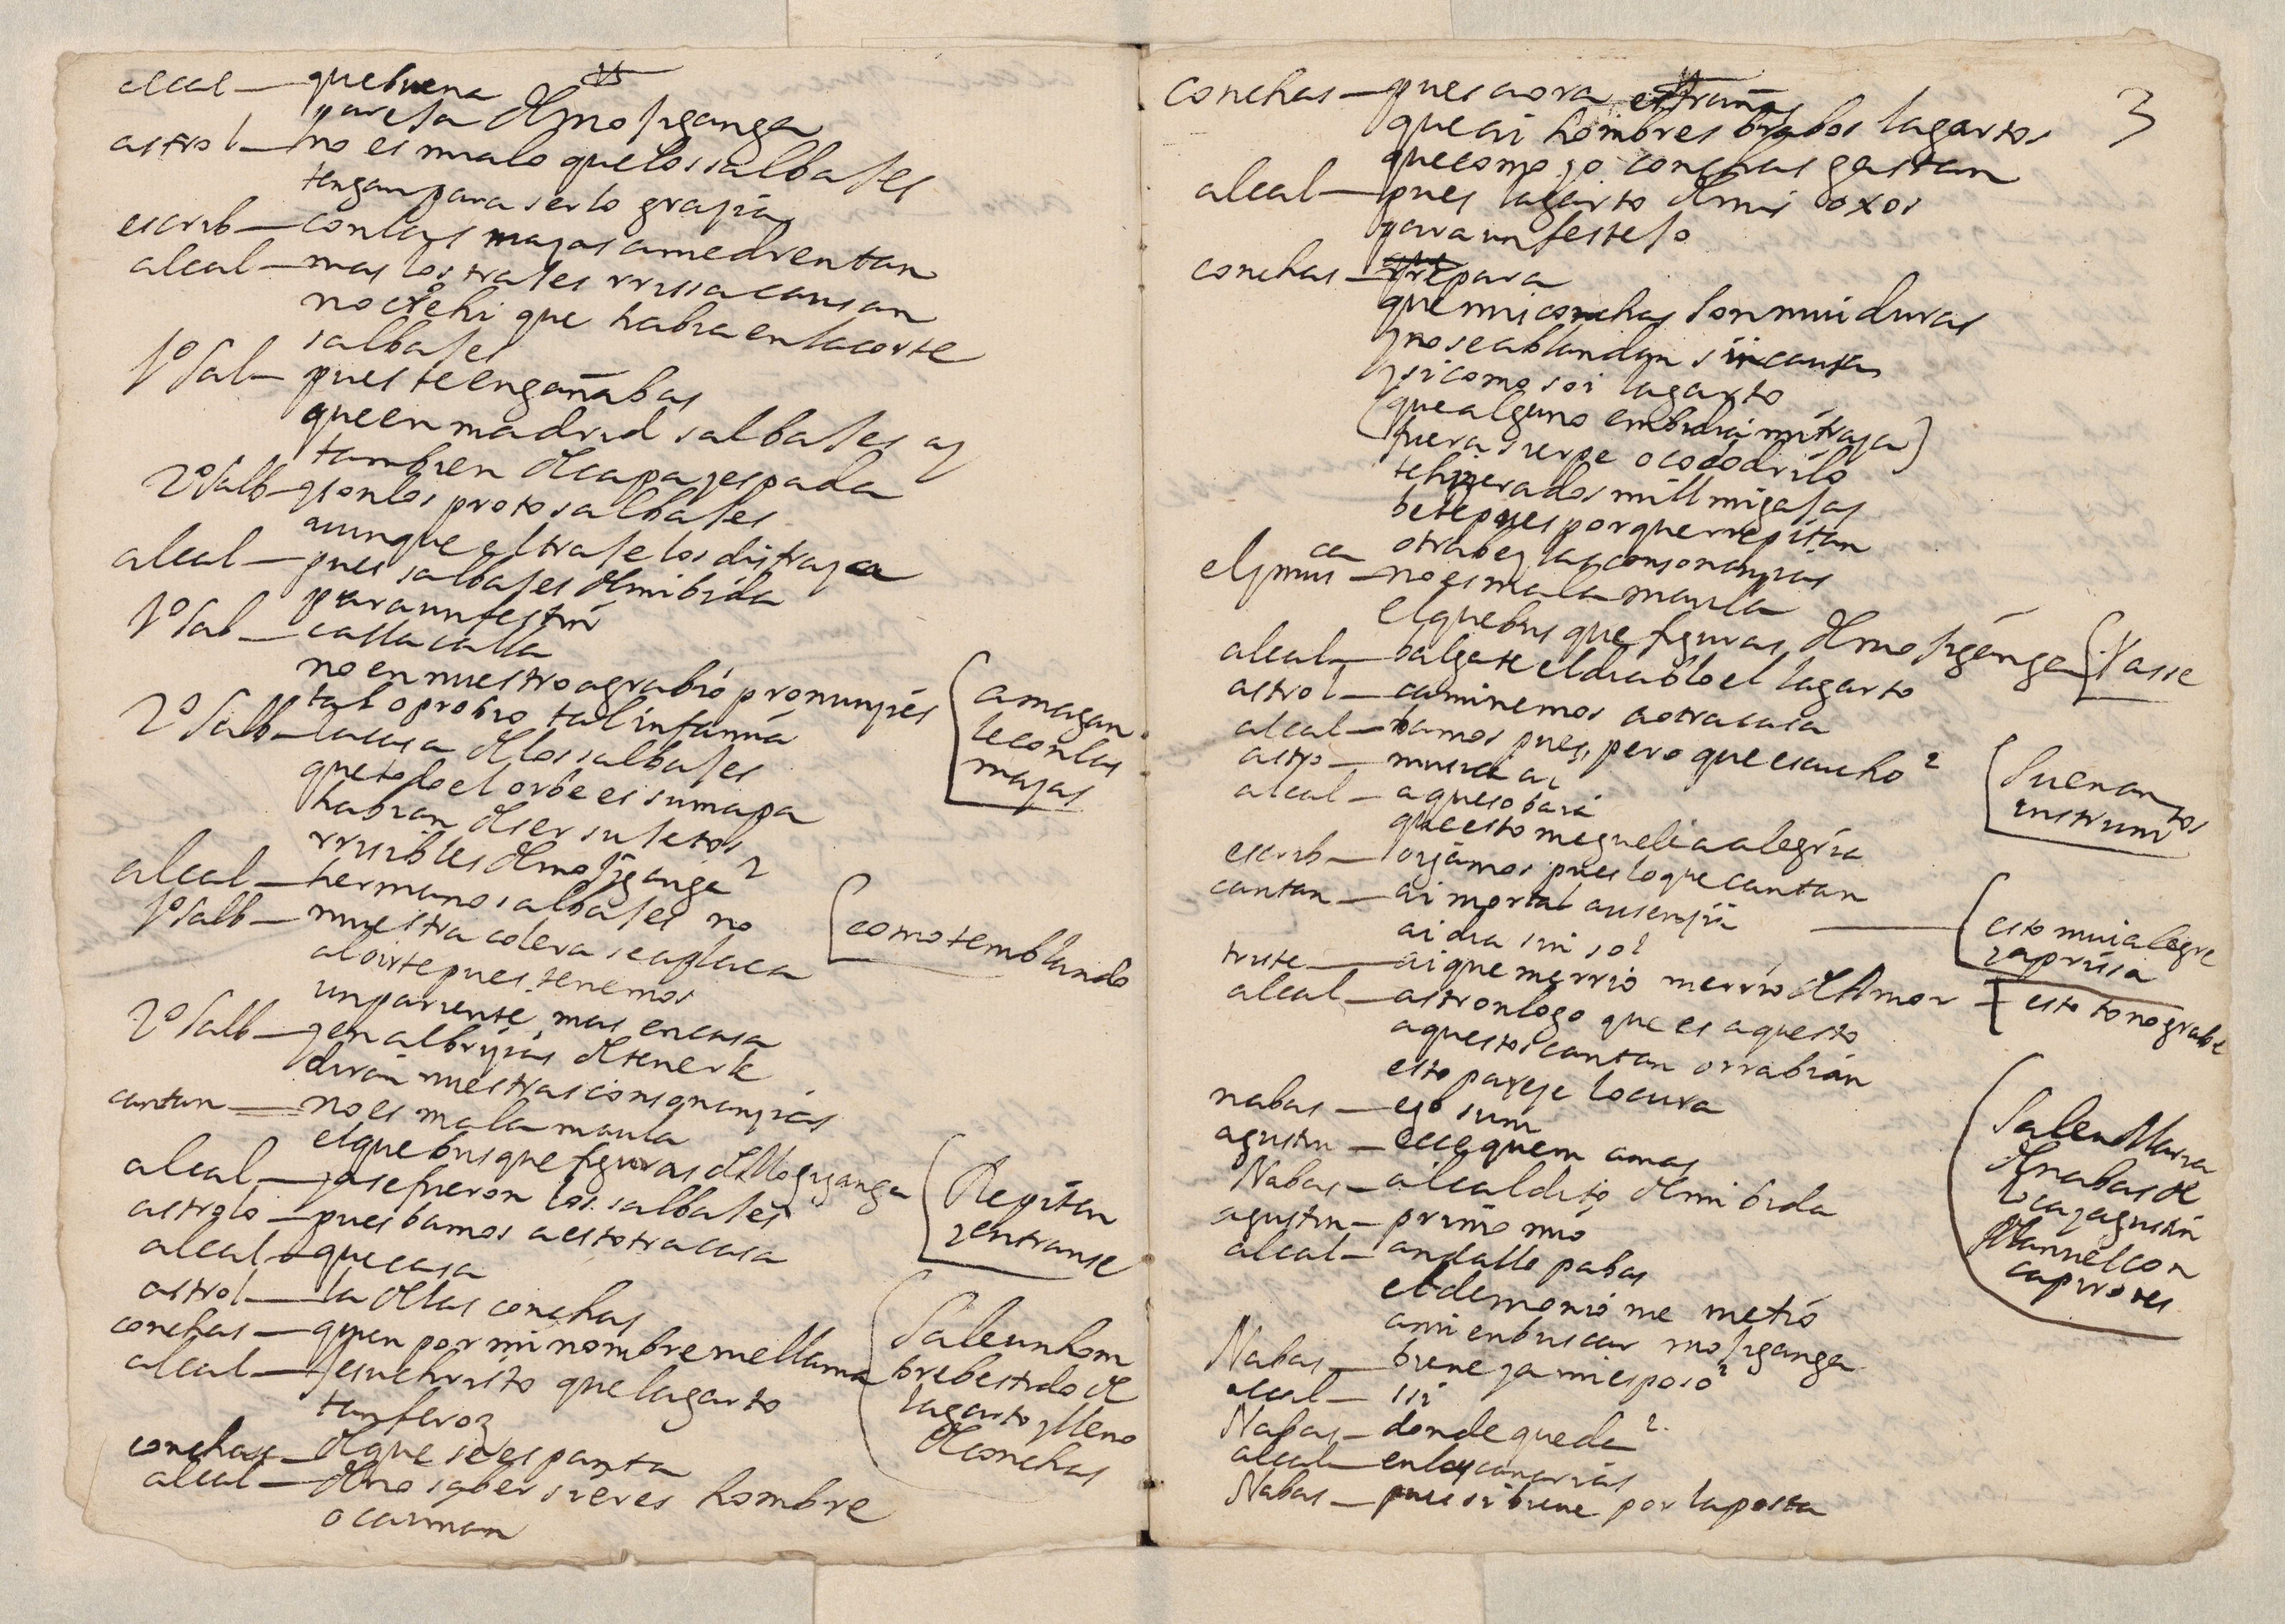 alcal — que buena
pareja de mojiganga
astrol — no es malo que los salbajes
tengan para serlo grazia
escrib — con las mazas amedrentan
alcal — mas los trajes rrisa causan
no crehi que habia en la corte
salbajes
1º Sal — pues te engañabas
que en madrid salbajes ay
tambien de capa y espada
2º Salb — y son los protosalbajes
aunque el traje los disfraza
alcal — pues salbajes de mi bida
para un festin
1º Sal — calla calla
no en nuestro agrabio pronunzies
tal oprobio tal infamia
2º Salb — la casa de los salbajes
que todo el orbe es su mapa
habian de ser sujetos
rrisibles de mojiganga?
alcal — hermanos salbajes no
1º Salb — nuestra colera se aplaca
al oirte pues tenemos
un pariente mas en casa
2º Salb — y en albrizias de tenerle
diran nuestras consonanzias
cantan — no es mala maula
el que busque figuras de Mogiganga
alcal — ya se fueron los salbajes
astrolo — pues bamos a estotra casa
alcal — que casa
astrol — la de las conchas
conchas — quien por mi nombre me llama
alcal — Jesuchristo que lagarto
tan feroz
conchas — de que se espanta
alcal — de no saber si eres hombre
o caiman
amagan
le con las
mazas
como temblando
Repitan
y entranse
Sale un hom
bre bestido de
lagarto y lleno
de conchas
3
conchas — pues aora estrañas
que ai hombres brabos lagartos
que como yo conchas gastan
alcal — pues lagarto de mis oxos
para un festejo
conchas — rrepara
que mis conchas son mui duras
y no se ablandan sin causa
y si como soi lagarto
(que alguno embidia mi traza)
fuera sierpe o cocodrilo
te hiziera dos mill migajas
bete pues porque rrepitan
otra bez las consonanzias
el y musca — no es mala maula
el que busque figuras de mojiganga
alcal — balgate el diablo el lagarto
astrol — caminemos a otra casa
alcal — bamos pues, pero que escucho?
astro — musica ai
alcal — aqueso baia
que esto me guele a alegria
escrib — oyamos pues lo que cantan
cantan — ai mortal ausenzia
ai dia sin sol
triste — ai que me rrio me rrio de Amor
alcal — astronlogo que es aquesto
aquestos cantan o rrabian
esto pareze locura
nabas — ego sum
agustin — ecce quem amas
Nabas — alcaldito de mi bida
agustin — primo mio
alcal — andallo pabas
el demonio me metio
a mi en buscar mojiganga
Nabas — biene ya mi esposo?
alcal — si
Nabas — donde queda?
alcal — en las canarias
Nabas — pues si biene por la posta
Vasse
Suenan
instrumtos
esto mui alegre
y aprisa
esto tono grabe
Salen Maria
de nabas de
loca y agustin
Manuel con
capirotes